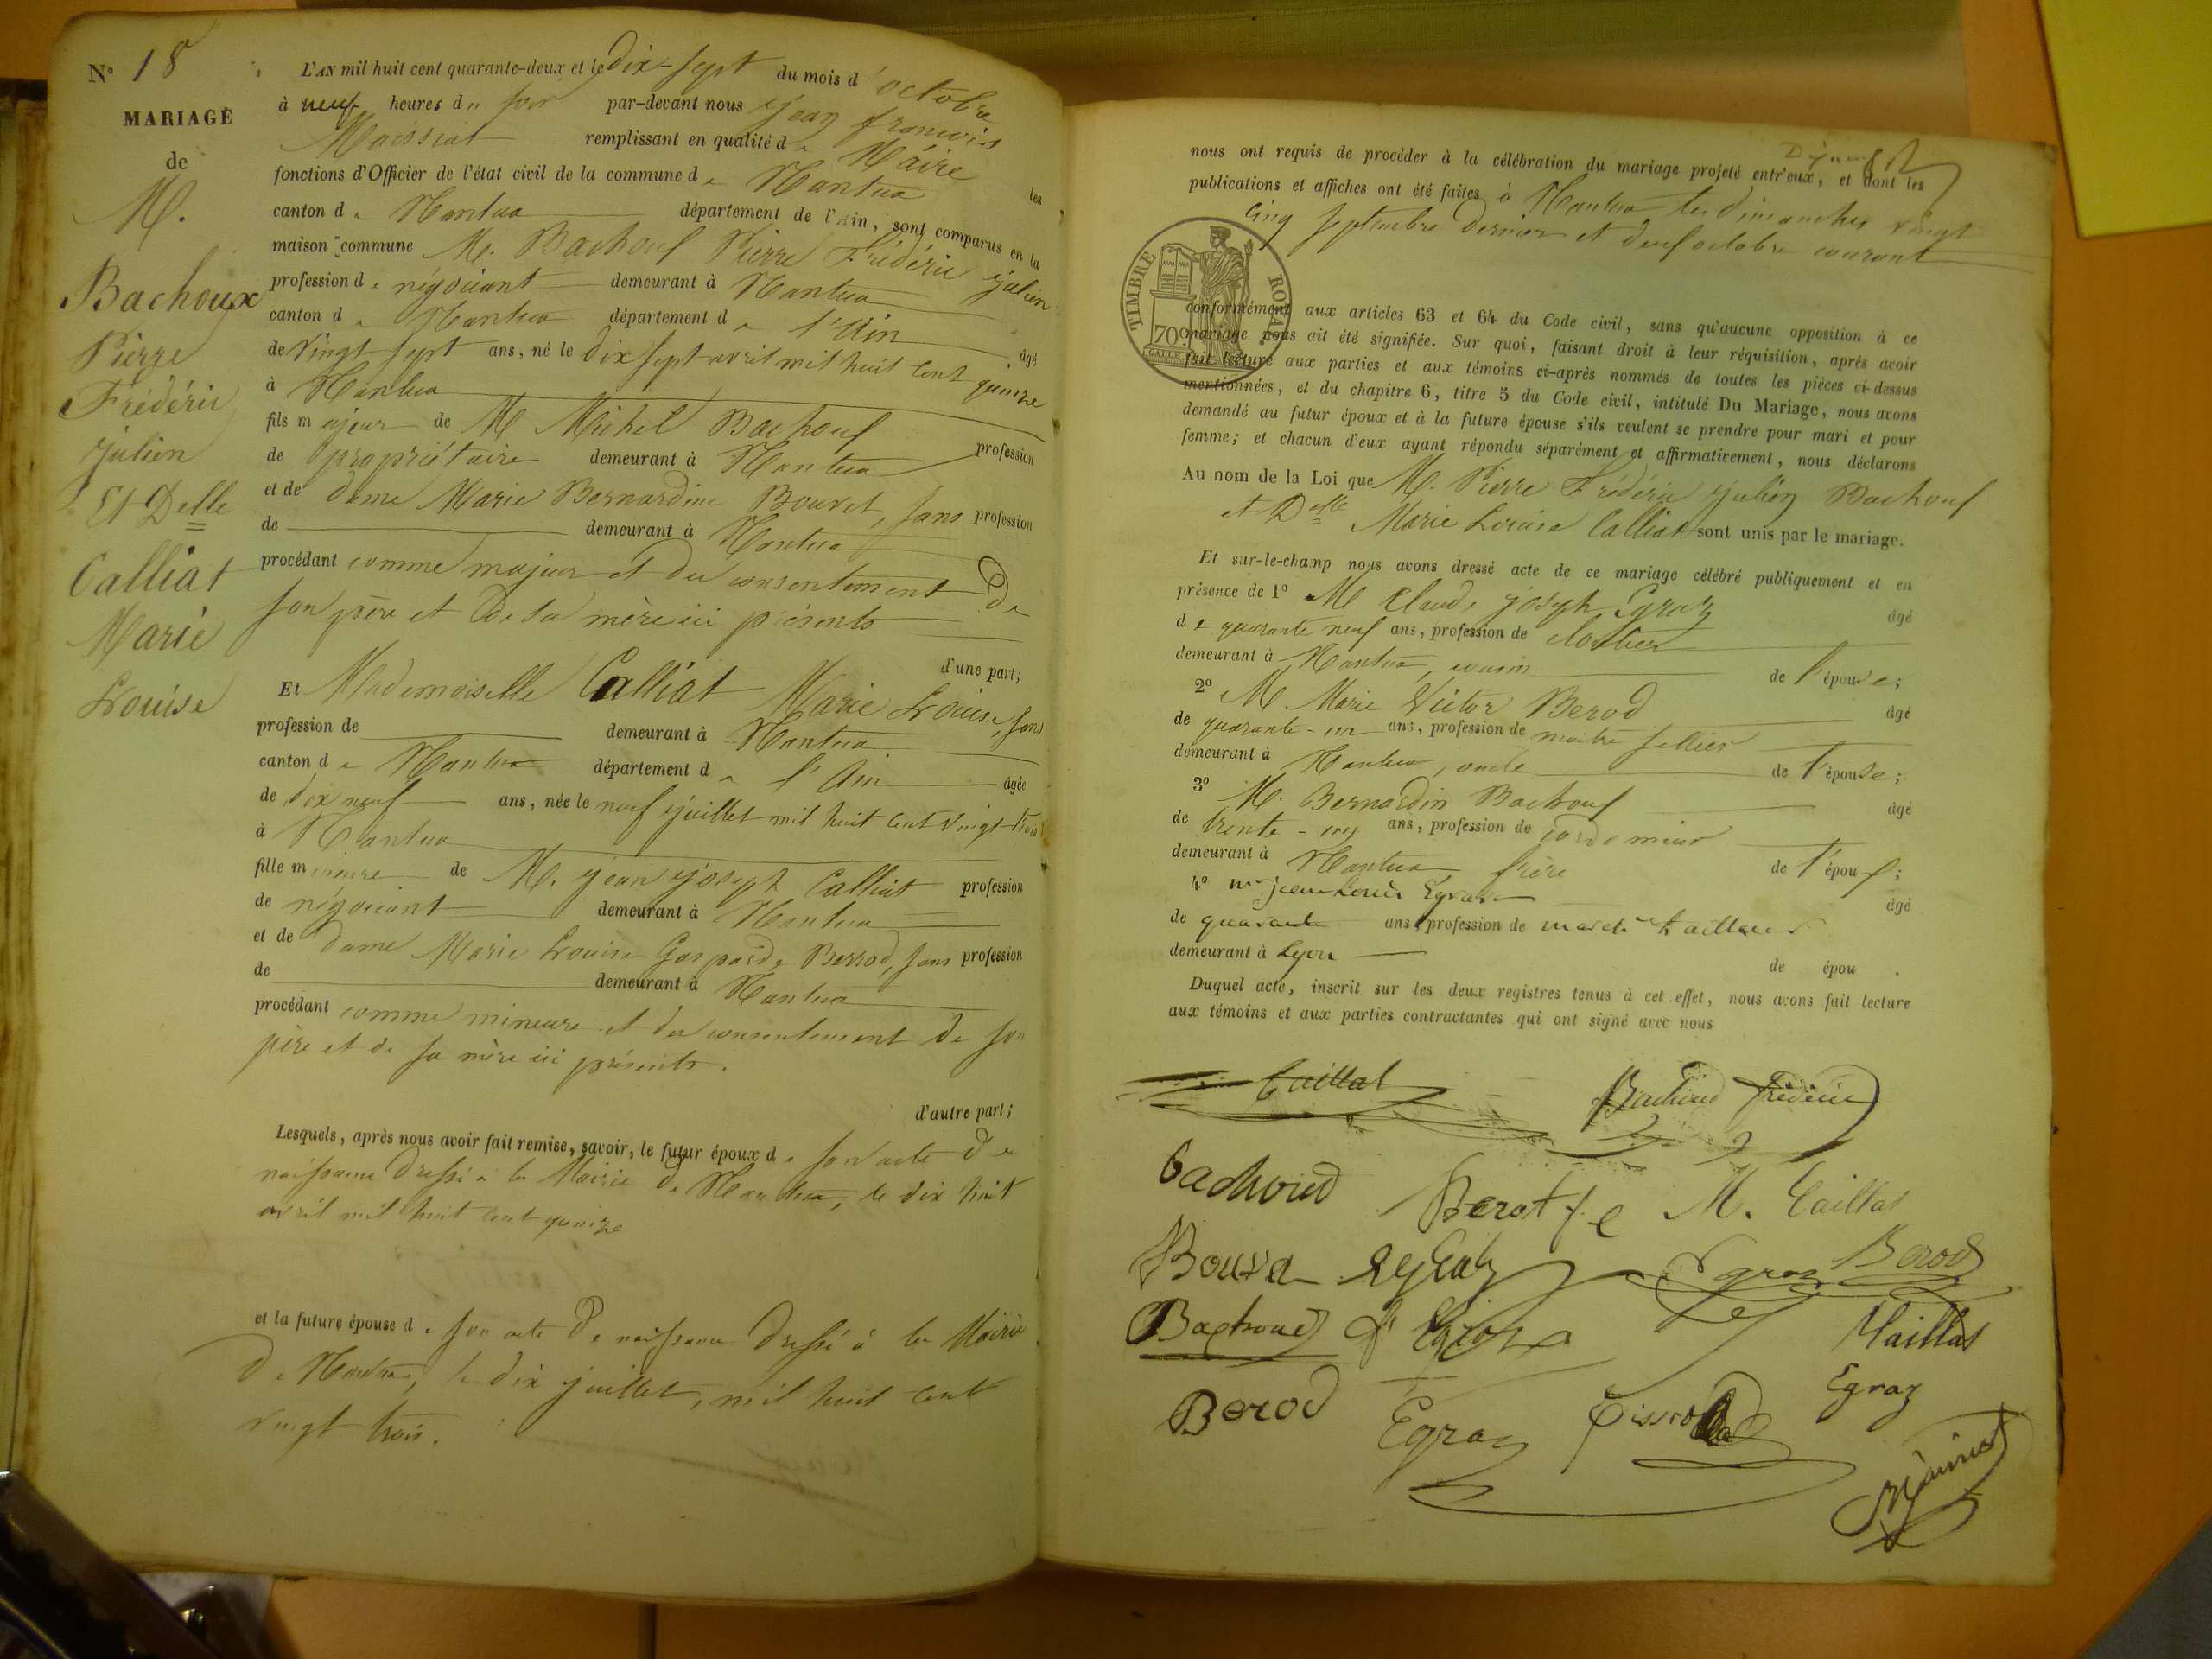 N° 18
MARIAGE
de
M.
Bachoux
Pierre
Frédéric
julien
Et Delle
Calliat
Marie
Louise
L'AN mil huit cent quarante-deux et le Dix-Sept du mois d'octobre
à neuf heures du soir par-devant nous jean françois
Maissiat remplissant en qualité de Maire les
fonctions d'Officier de l'état civil de la commune de Nantua
canton de Nantua département de l'Ain, sont comparus en la
maison commune M. Bachouf Pierre Frédéric julien
profession de négociant demeurant à Nantua
canton de Nantua département de l'Ain âgé
de vingt sept ans, né le dix sept avril mil huit cent quinze
à Nantua
fils majeur de M Michel Bachouf profession
de propriétaire demeurant à Nantua
et de dame Marie Bernardine Bouvet, sans profession
de demeurant à Nantua
procédant comme majeur et du consentement De
son père et de sa mère ici présents
d'une part;
Et Mademoiselle Calliat Marie Louise, sans
profession de demeurant à Nantua
canton de Nantua département de l'Ain âgée
de dix neuf ans, née le neuf juillet mil huit cent vingt-trois
à Nantua
fille mineure de M. jean joseph Calliat profession
de négociant demeurant à Nantua
et de dame Marie Louise Gasparde Berrod, sans profession
de demeurant à Nantua
procédant comme mineure et du consentement de son
père et de sa mère ici présents.
d'autre part;
Lesquels, après nous avoir fait remise, savoir, le futur époux de son acte de
naissance dressé à la Mairie de Nantua, le dix huit
avril mil huit cent quinze
et la future épouse de son acte de naissance dressé à la Mairie
de Nantua, le dix juillet, mil huit cent
vingt trois.
nous ont requis de procéder à la célébration du mariage projeté entr'eux, et dont les
publications et affiches ont été faites à Nantua les dimanches vingt
cinq septembre dernier et deux octobre courant
TIMBRE ROYAL
70c
conformément aux articles 63 et 64 du Code civil, sans qu'aucune opposition à ce
mariage nous ait été signifiée. Sur quoi, faisant droit à leur réquisition, après avoir
fait lecture aux parties et aux témoins ci-après nommés de toutes les pièces ci-dessus
mentionnées, et du chapitre 6, titre 5 du Code civil, intitulé Du Mariage, nous avons
demandé au futur époux et à la future épouse s'ils veulent se prendre pour mari et pour
femme; et chacun d'eux ayant répondu séparément et affirmativement, nous déclarons
Au nom de la Loi que M. Pierre Frédéric julien Bachouf
et Delle Marie Louise Calliat sont unis par le mariage.
Et sur-le-champ nous avons dressé acte de ce mariage célébré publiquement et en
présence de 1° M Claude joseph Egraz âgé
de quarante neuf ans, profession de cloutier
demeurant à Nantua, cousin de l'épouse;
2° M Marie Victor Berod âgé
de quarante-un ans, profession de maître sellier
demeurant à Nantua, oncle de l'épouse;
3° M. Bernardin Bachouf âgé
de trente-un ans, profession de cordonnier
demeurant à Nantua frère de l'époux;
4° mr jean Louis Egraz âgé
de quarante ans, profession de march tailleur
demeurant à Lyon de épou .
Duquel acte, inscrit sur les deux registres tenus à cet effet, nous avons fait lecture
aux témoins et aux parties contractantes qui ont signé avec nous
Caillat Bachoud frédéric
bachoud Berot fe M. Caillat
Bouvet Egraz Berod
Bachoud Egraz Maillat
Berod Egraz Tissot Egraz